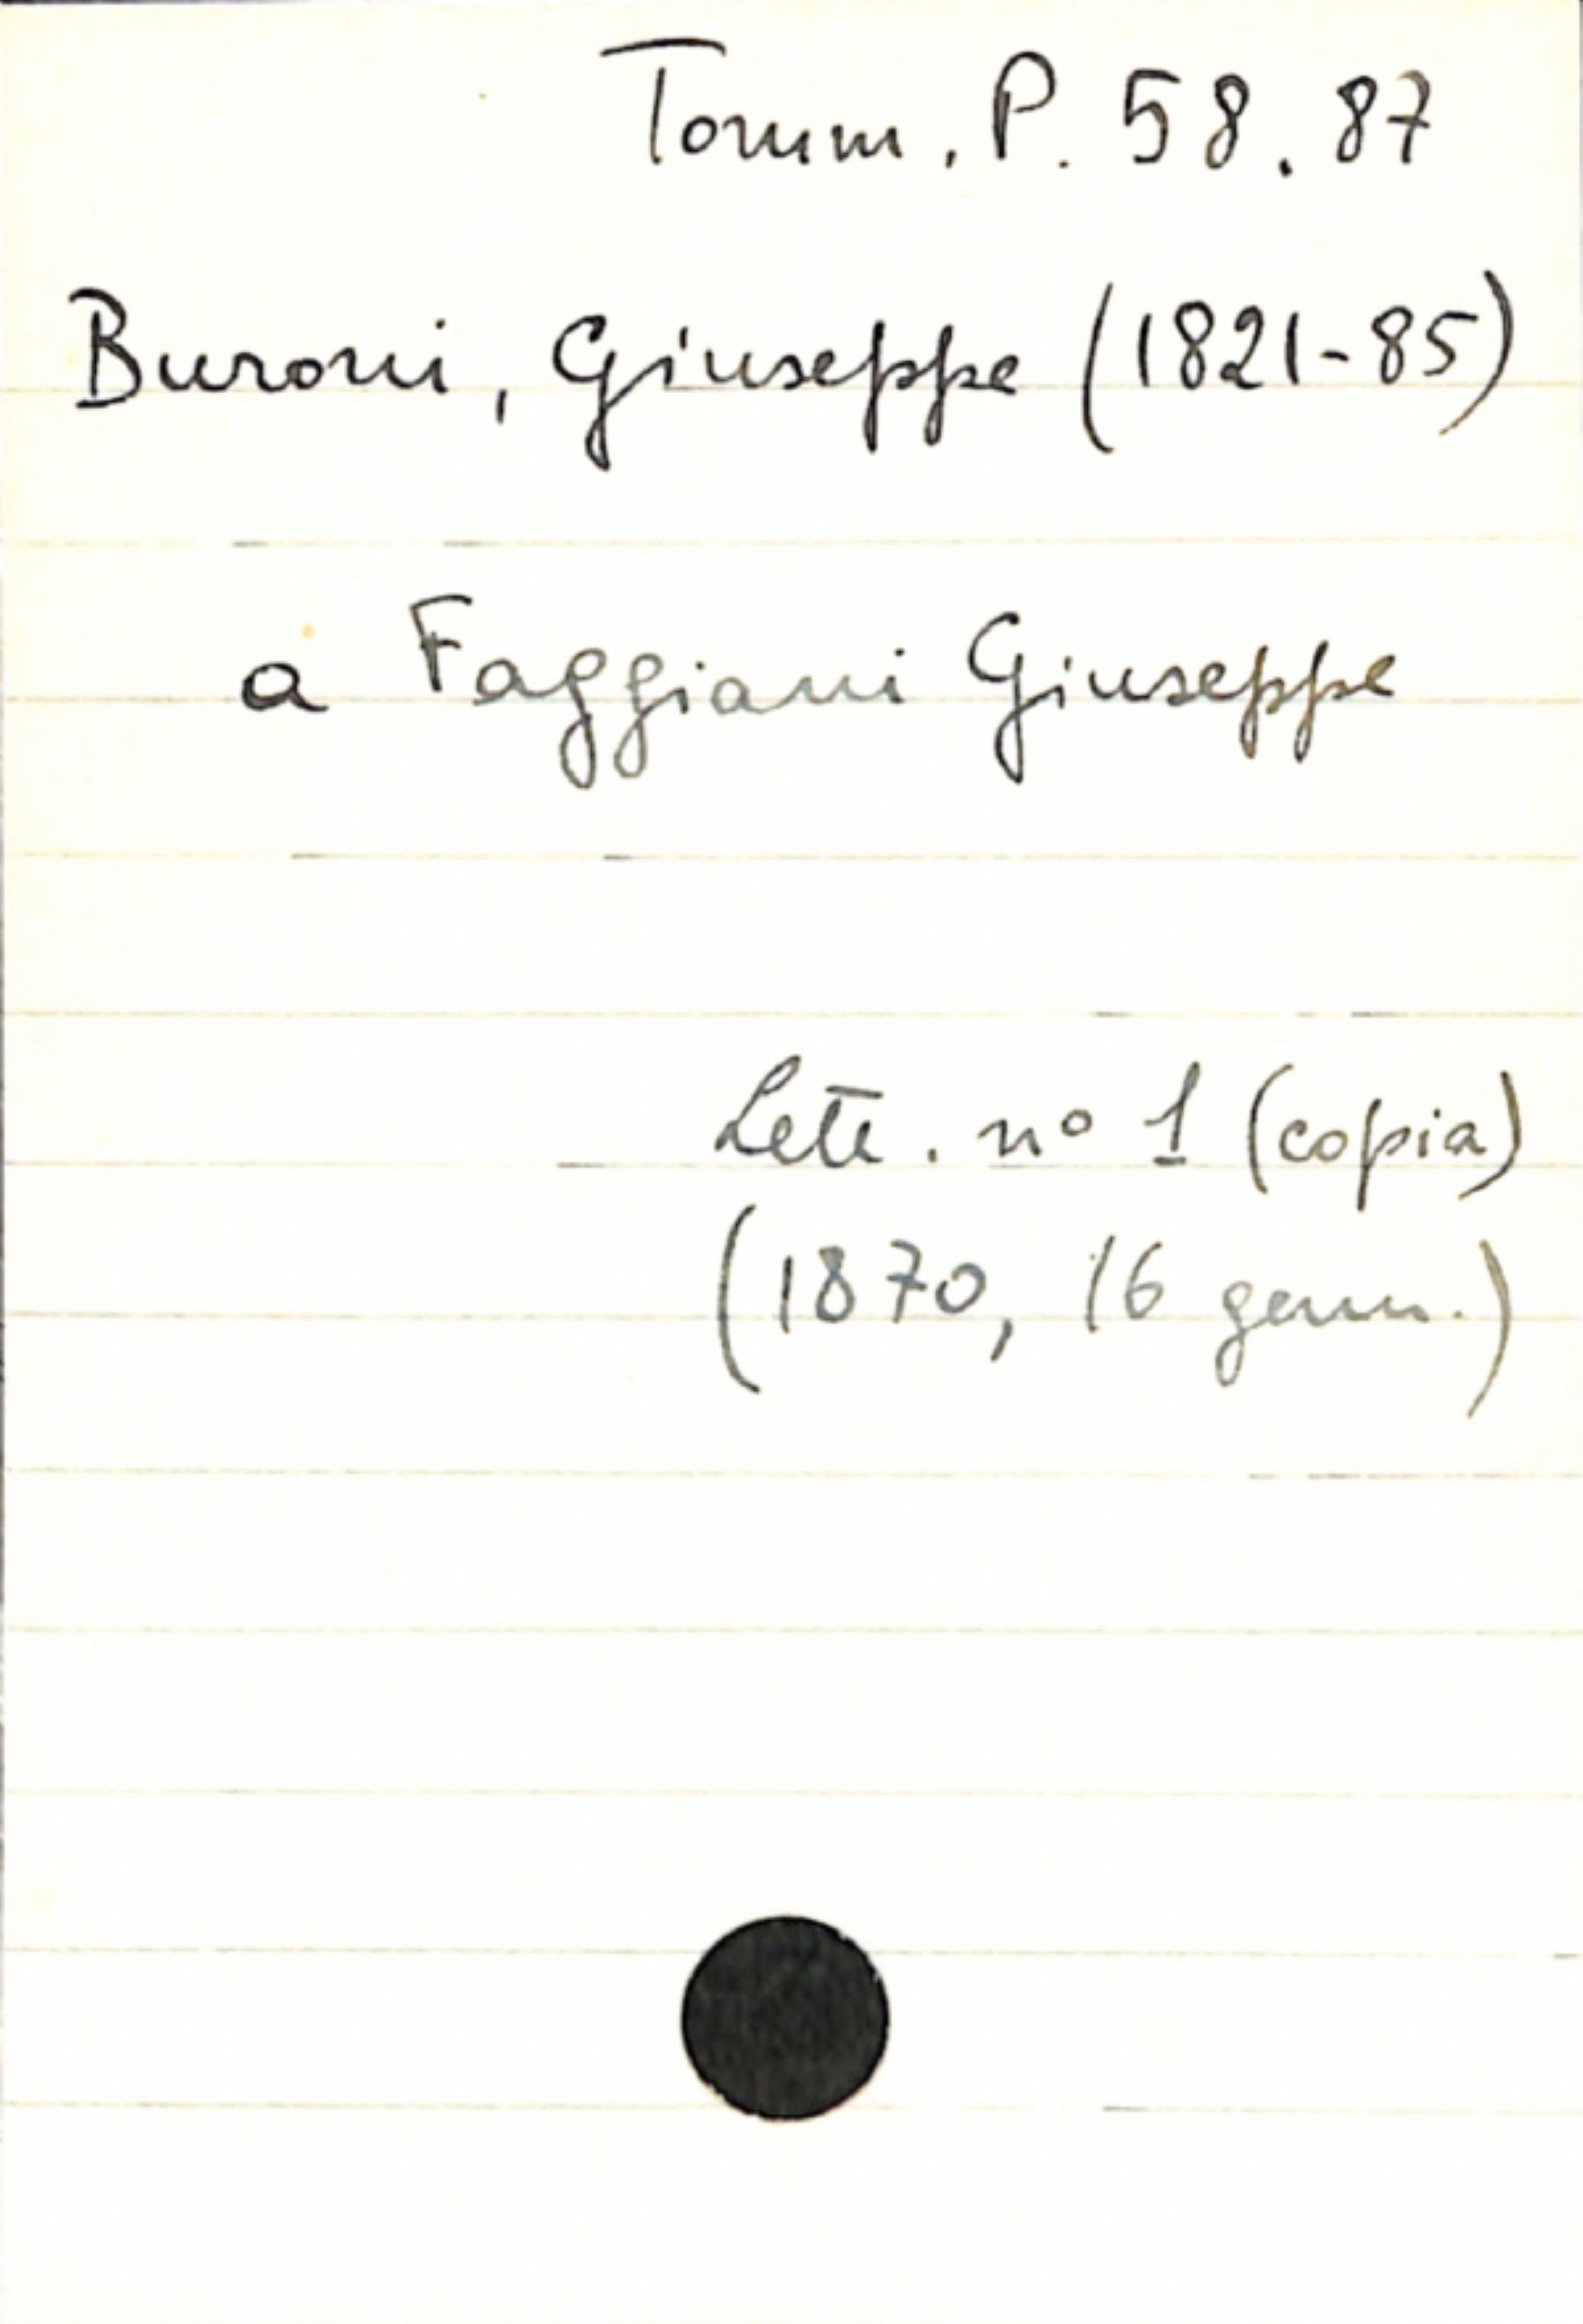 Tomm. P. 58. 87
Buroni, Giuseppe (1821-85)
a Faggiani Giuseppe
Lett. nº 1 (copia)
(1870, 16 genn.)